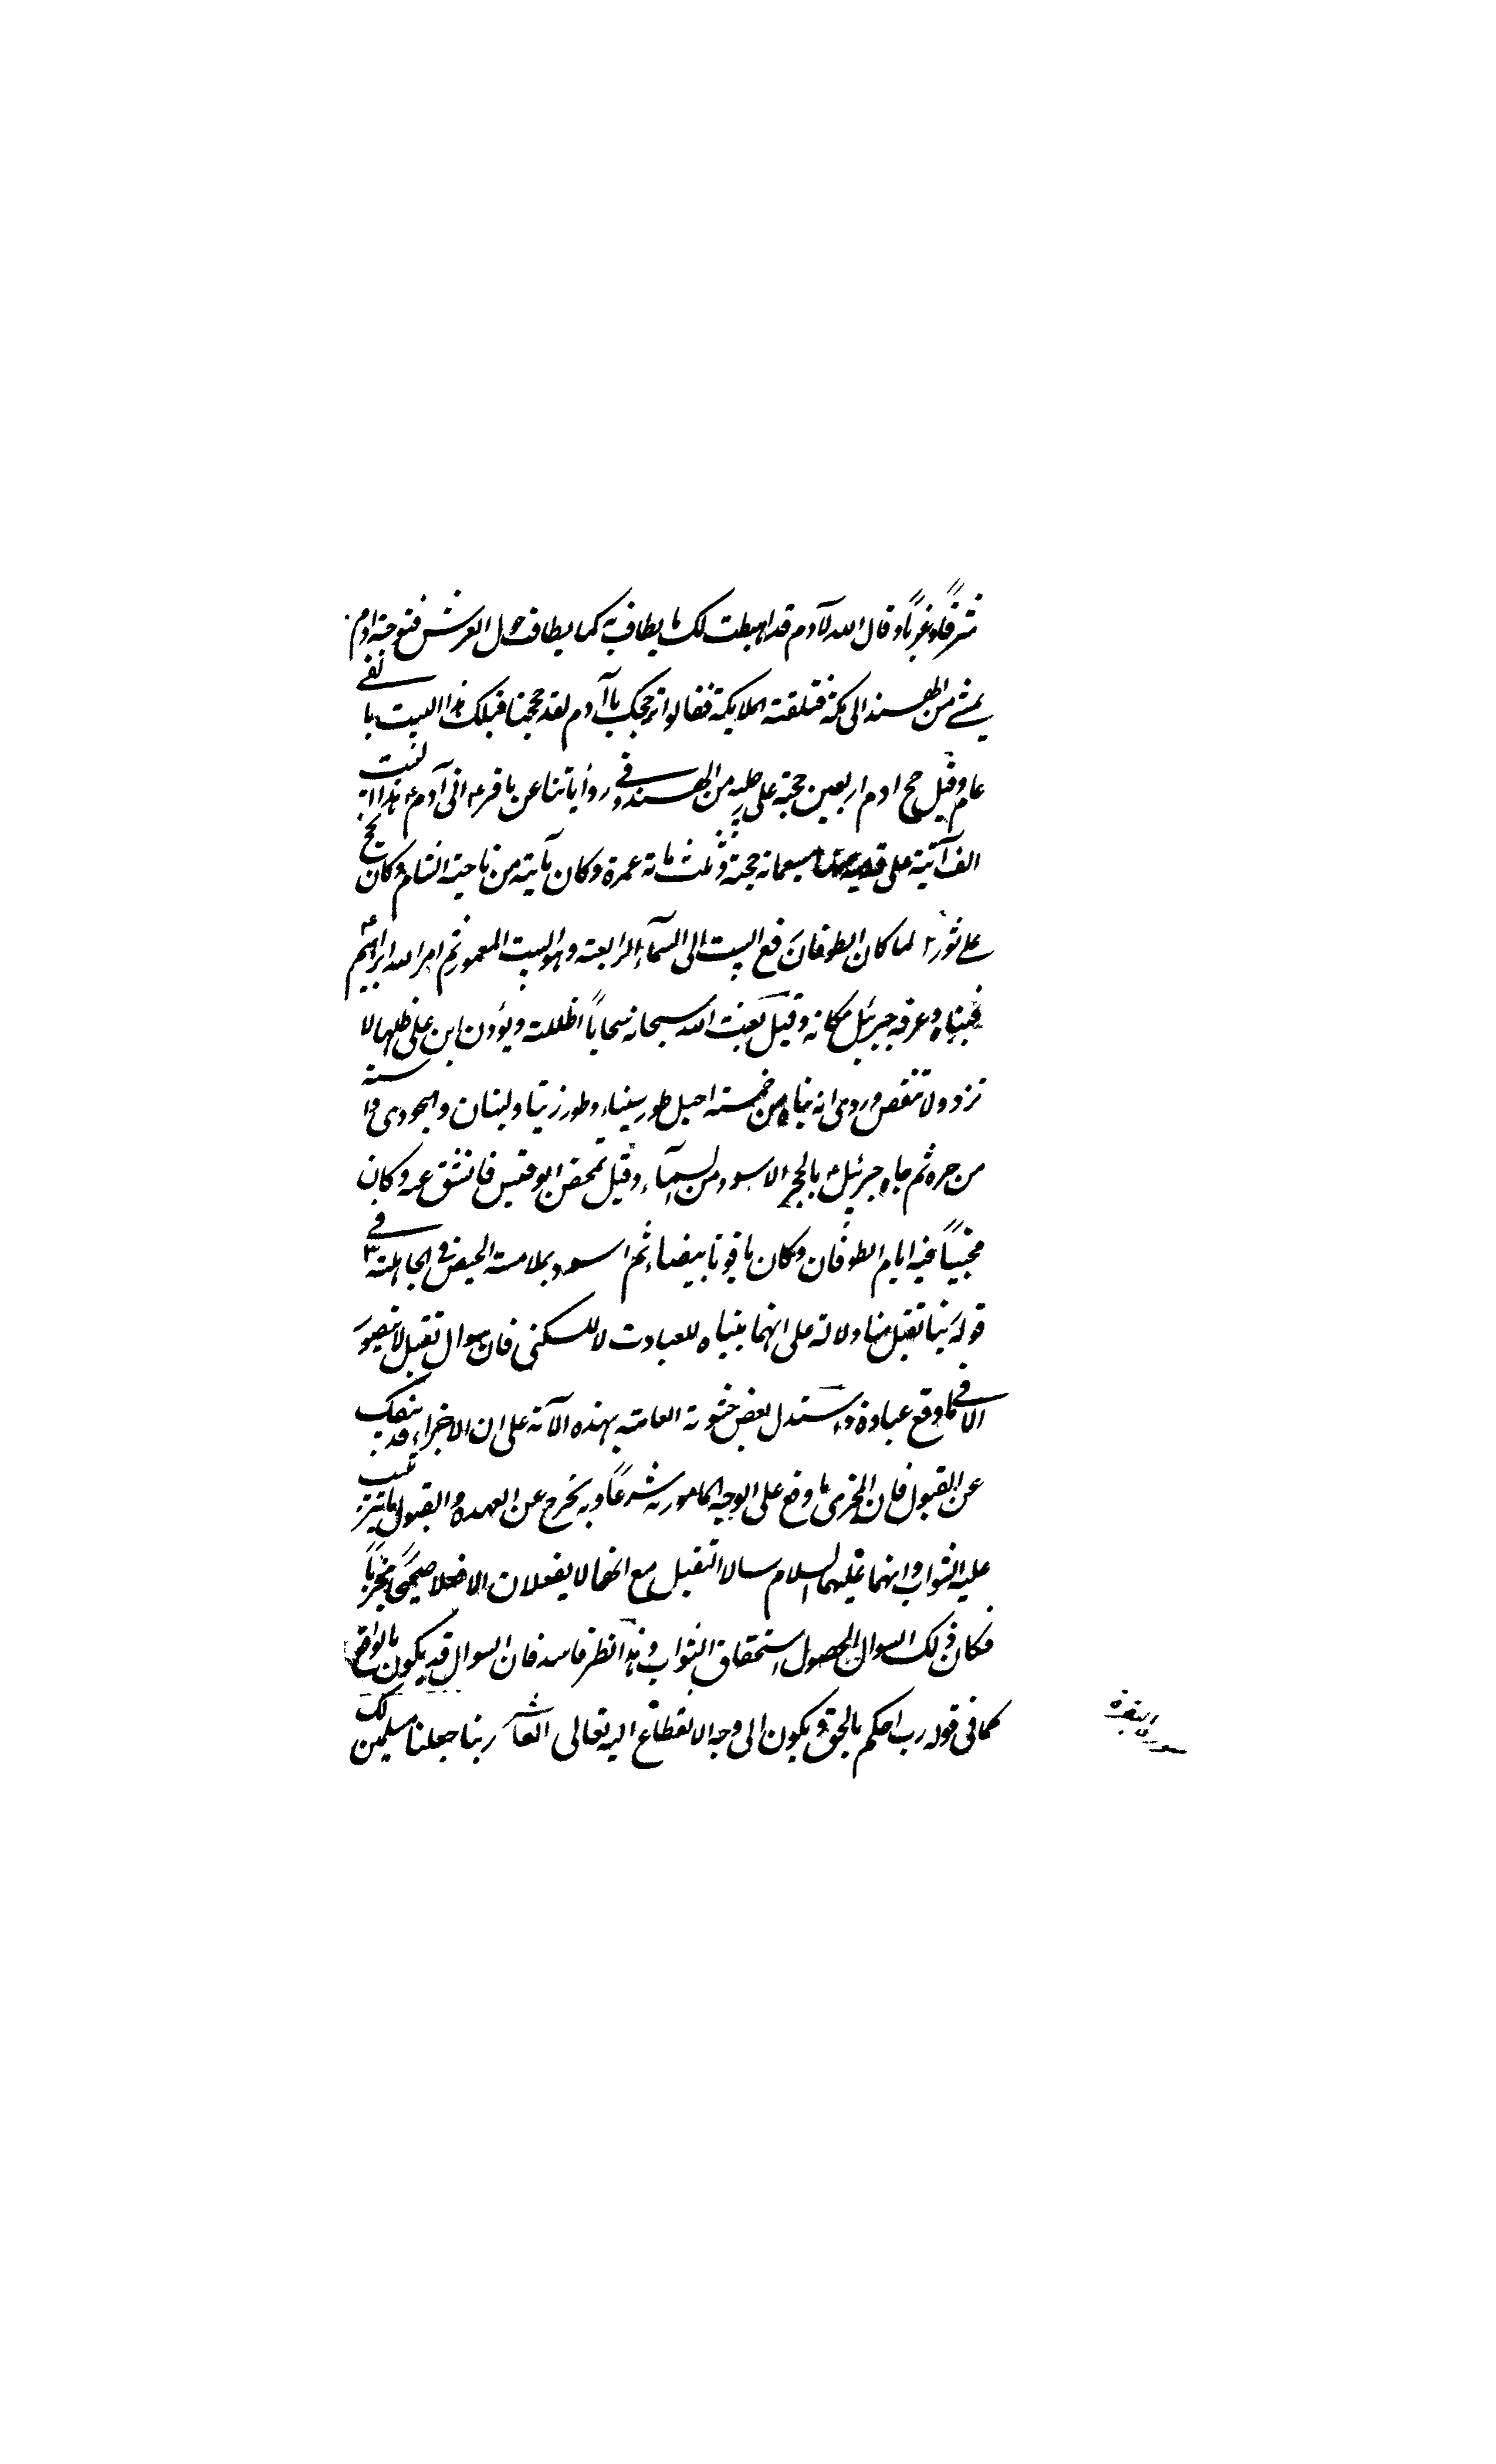 شرقًا وغربًا وقال الله لآدم قد اهبطت لك ما يطاف به كما يطاف حول العرش فتوجه ادم
يمشي من الهند الى مكة فتلقته الملايكة فقالوا بر حجك يا آدم لقد حججنا قبلك هذا البيت بالفي
عام وقيل حج ادم اربعين حجة على رجليه من الهند و في رواياتنا عن باقر ع اتى آدم ع هذا البيت
الف آتية على قدميه منها سبعمائة حجة وثلث مائة عمرة وكان يأتيه من ناحية الشام وكان يحج
على ثور لما كان الطوفان رفع البيت الى السمآء الرابعة وهو البيت المعمور ثم امر الله ابراهيم ع
فبناه وعرفه جبرئيل مكانه وقيل بعث الله سبحانه سحابًا اظللته ونودى ان ابن على ظلها لا
تزد ولا تنقص وروى انه بناه من خمسة اجبل طور سيناء وطور زيتا ولبنان والجودى واسسه
من حره ثم جاء جبرئيل ع بالحجر الاسود من السمآء وقيل تمخض ابو قبيس فانشق عنه وكان
مخبيًا فيه ايام الطوفان وكان ياقوتا بيضاء ثم اسود بملامسة الحيض في الجاهلية ٣ في
قوله ربنا تقبل منا دلالة على انهما بنياه للعبادت لا للسكنى فان سوال تقبل لا يتصور
الا في ما وقع عبادة واستدل بعض حشوية العامة بهذه الآية على ان الاجزاء قد ينفك
عن القبول فان المجزى ما وقع على الوجه المامور به شرعًا وبه يخرج عن العهده والقبول ما يترتب
عليه الثواب وانهما عليهما السلام سالا التقبل مع انهما لا يفعلان الا فعلا صحيحًا مجزيًا
فكان ذلك السوال لحصول استحقاق الثواب و هذا نظر فاسد فان السوال قد يكون بالواقع
كما فى قوله رب احكم بالحق و يكون الى وجه الانقطاع اليه تعالى العآشر ربنا جعلنا مسلمين لك